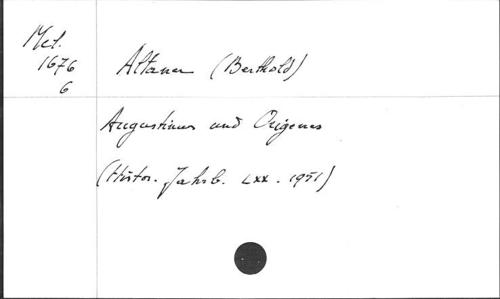 Mel.
1676
6
Altaner (Berthold)
Augustinus und Origenes
(Histor. Jahrb. LXX. 1951)